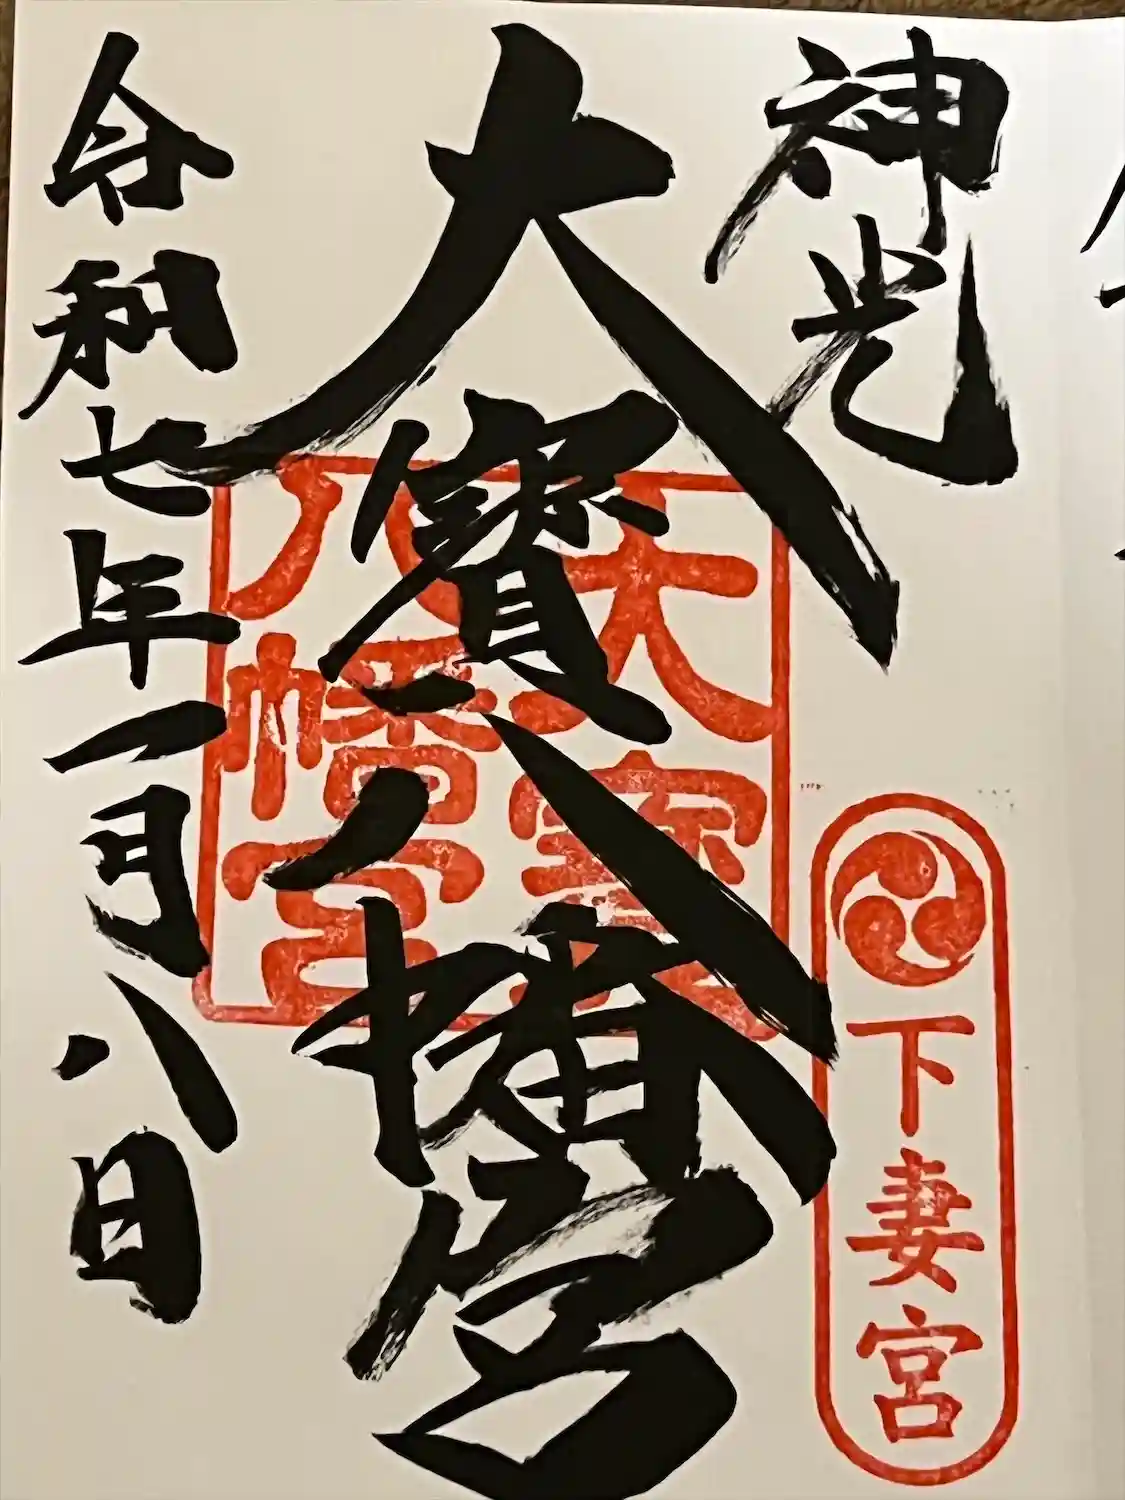 神光
下妻宮
大寳八幡宮
大寳八幡宮
令和七年一月八日